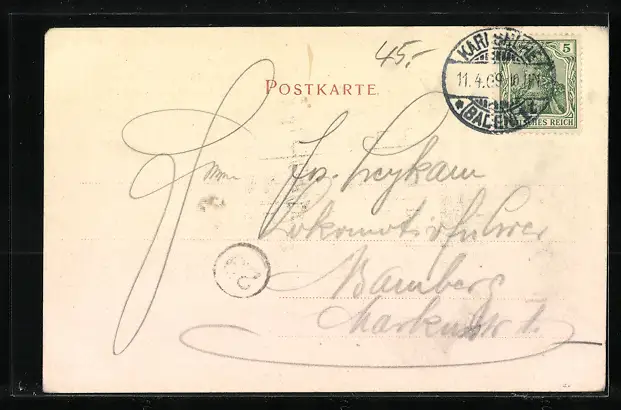 45.-
POSTKARTE
KARLSRUHE
11.4.09
(BADEN)
5
DEUTSCHES REICH
Jos. Leykam
Lokomotivführer
Bamberg
Markusstr 1.